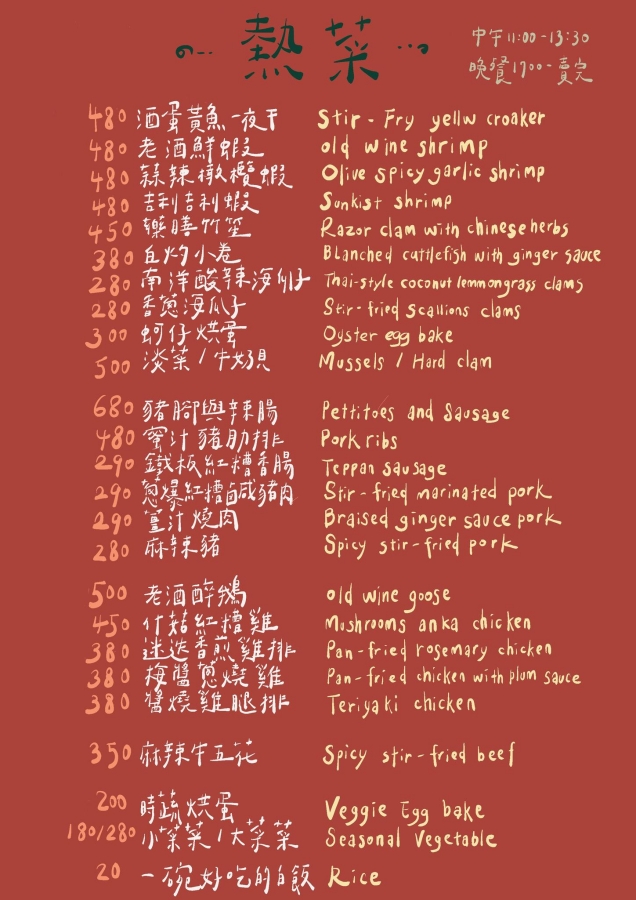 熱菜
中午11:00-13:30
晚餐1700-賣完
480 酒蛋黃魚一夜干 Stir-Fry yellw croaker
480 老酒鮮蝦 old wine shrimp
480 蒜辣橄欖蝦 Olive spicy garlic shrimp
480 吉利吉利蝦 Sunkist shrimp
450 藥膳竹笙 Razor clam with chinese herbs
380 丘灼小卷 Blanched cuttlefish with ginger sauce
280 南洋酸辣海瓜子 Thai-style coconut lemmongrass clams
280 香蔥海瓜子 Stir-fried scallions clams
300 蚵仔烘蛋 Oyster egg bake
500 淡菜/牛奶貝 Mussels / Hard clam
680 豬腳與辣腸 Pettitoes and Sausage
480 蜜汁豬肋排 Pork ribs
290 鐵板紅糟香腸 Teppan sausage
290 蔥爆紅糟鹹豬肉 Stir-fried marinated pork
290 薑汁燒肉 Braised ginger sauce pork
280 麻辣豬 Spicy stir-fried pork
500 老酒醉鵝 old wine goose
450 什菇紅糟雞 Mushrooms anka chicken
380 迷迭香煎雞排 Pan-fried rosemary chicken
380 梅醬蔥燒雞 Pan-fried chicken with plum sauce
380 醬燒雞腿排 Teriyaki chicken
350 麻辣牛五花 Spicy stir-fried beef
200 時蔬烘蛋 Veggie Egg bake
180/280 小菜菜/大菜菜 Seasonal Vegetable
20 一碗好吃的白飯 Rice